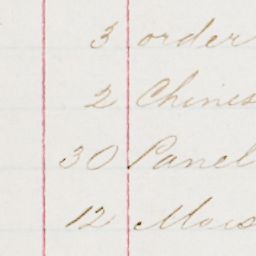 3 order
2 Chines
30 Panel
12